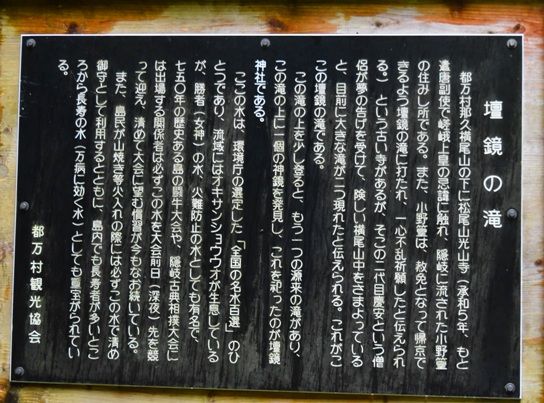 壇鏡の滝
都万村那久横尾山の下に松尾山光山寺（承和5年、もと
遣唐副使で嵯峨上皇の忌諱に触れ、隠岐に流された小野篁
の住みし所である。また、小野篁は、赦免となって帰京で
きるよう壇鏡の滝に打たれ、一心不乱祈願したと伝えられ
る。）という古い寺があるが、そこの二代目慶安という僧
侶が夢の告げを受けて、険しい横尾山中をさまよっている
と、目前に大きな滝が二つ現れたと伝えられる。これがこ
の壇鏡の滝である。
この滝の上を少し登ると、もう一つの源来の滝があり、
この滝の上に一個の神鏡を発見し、これを祀ったのが壇鏡
神社である。
ここの水は、環境庁の選定した「全国の名水百選」のひ
とつであり、流域にはオキサンショウウオが生息している
が、勝者（女神）の水、火難防止の水としても有名で、
七五〇年の歴史ある島の闘牛大会や、隠岐古典相撲大会に
は出場する関係者は必ずこの水を大会前日（深夜）先を競
って迎え、清めて大会に望む慣習が今もなお続いている。
また、島民が山焼き等火入れの際には必ずこの水で清め
御守として利用するとともに、島内でも長寿者が多いとこ
ろから長寿の水（万病に効く水）としても重宝がられてい
る。
都万村観光協会